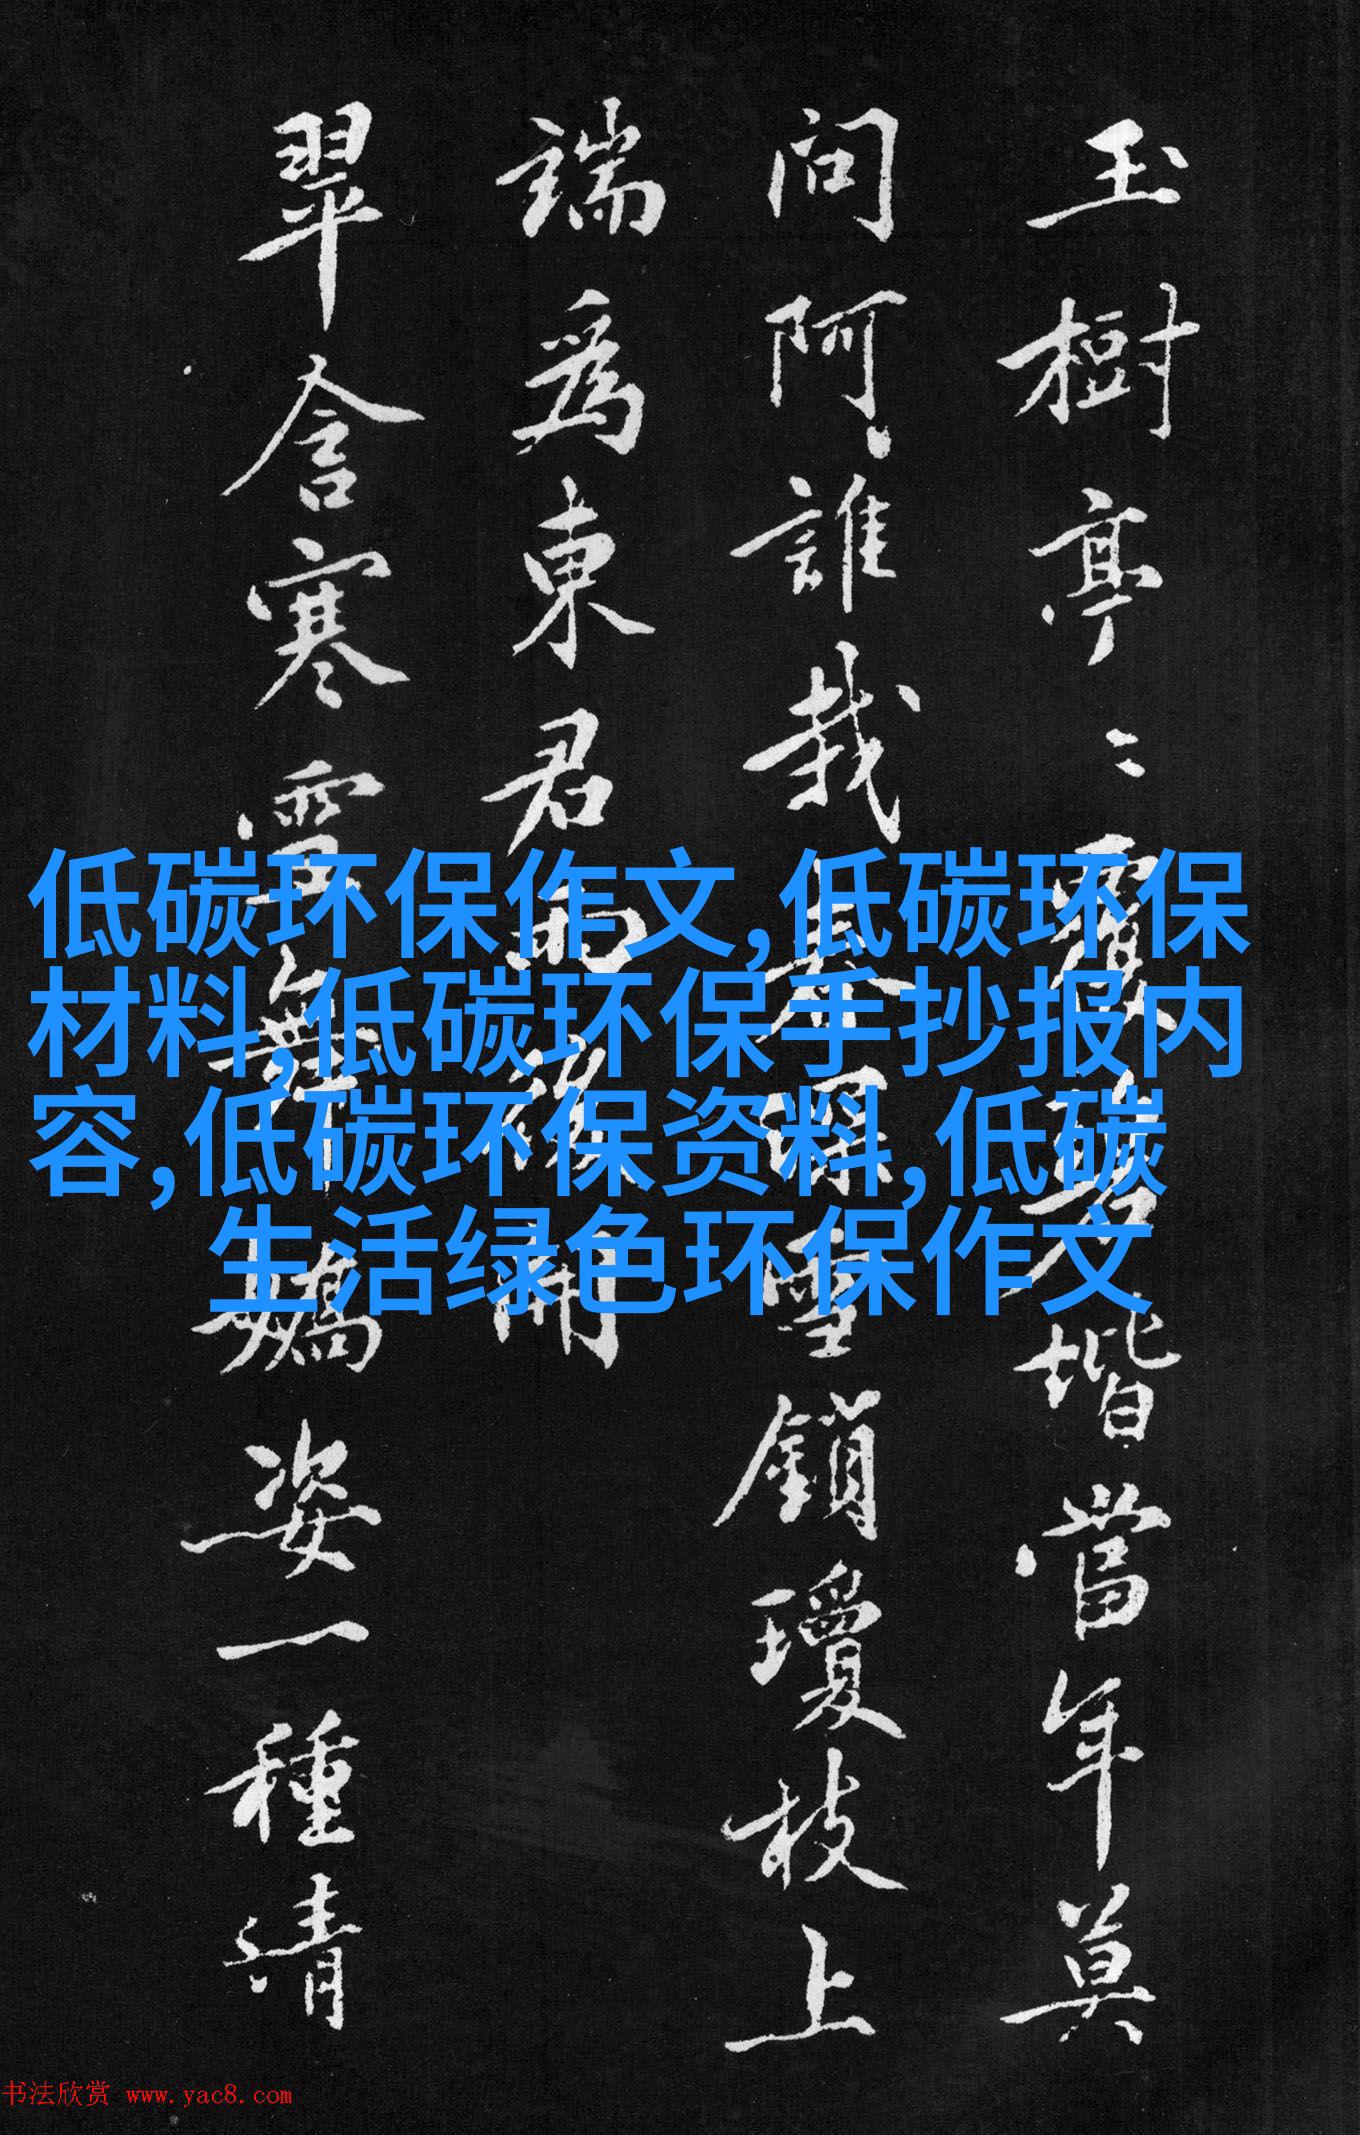 玉樹亭〻覆碧堦當年莫
問阿誰栽春深雪鎖瓊枝上
端爲東君雨開
翠含寒舞嬌姿一種清
低碳环保作文,低碳环保
材料,低碳环保手抄报内
容,低碳环保资料,低碳
生活绿色环保作文
书法欣赏 www.yac8.com